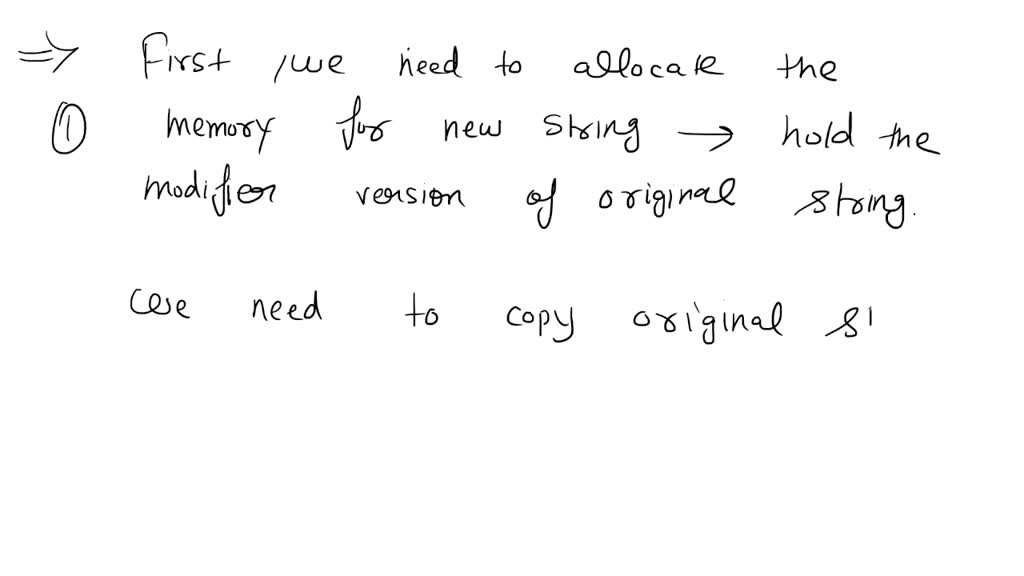 ⇒ First , we need to allocate the
① memory for new string → hold the
modifier version of original string.
we need to copy original st